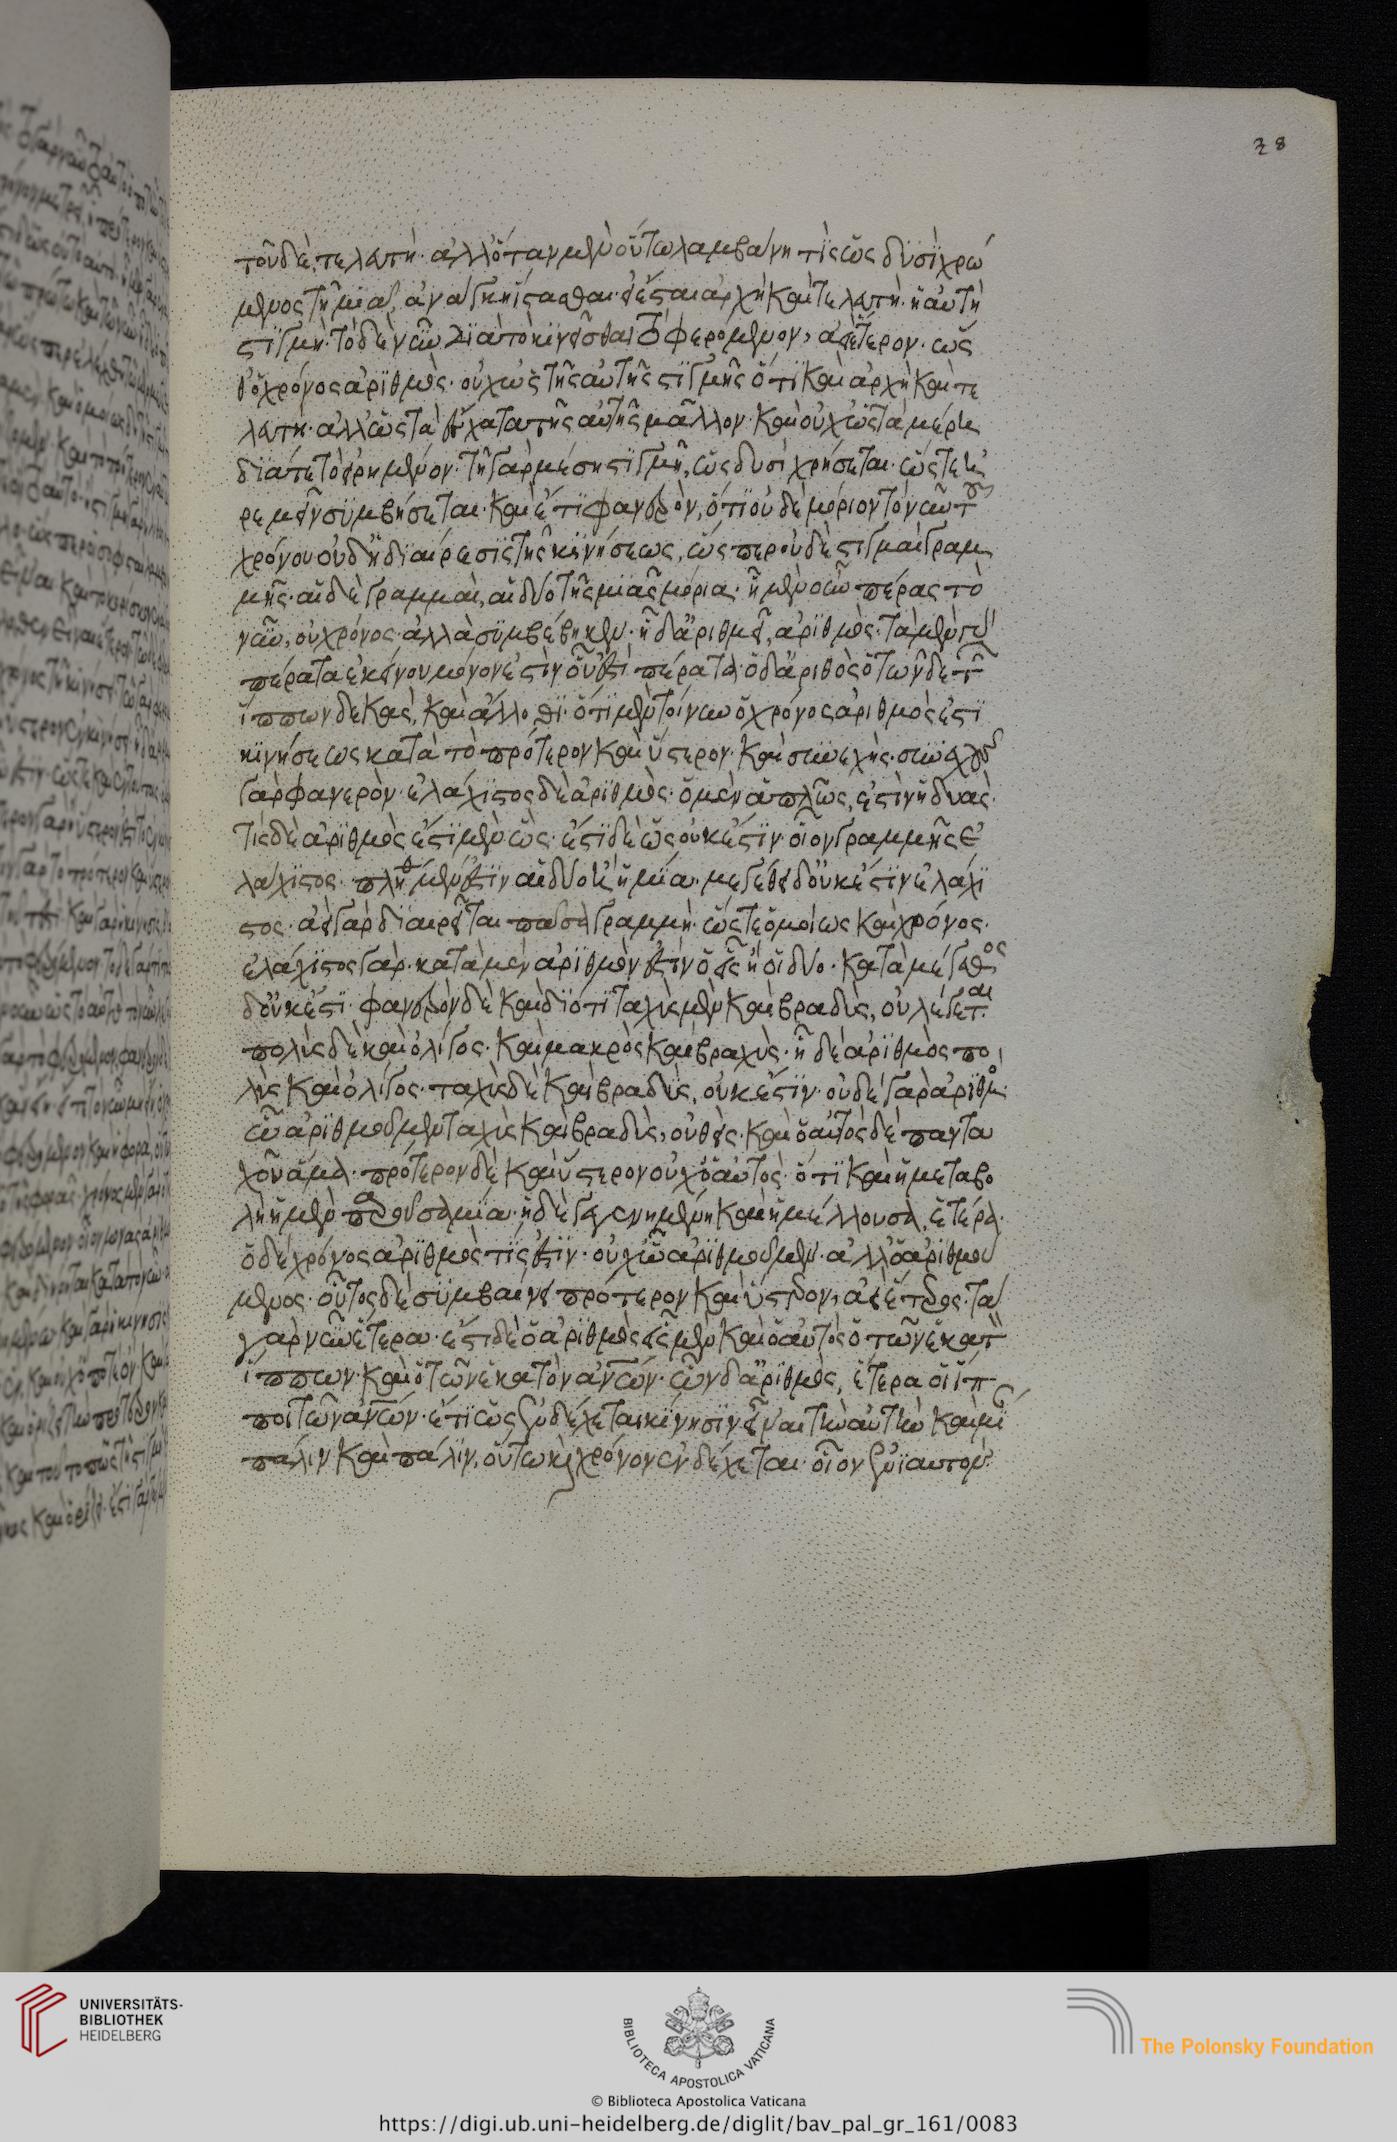 τοῦ δὲ, τελευτή. ἀλλ' ὅταν μὲν οὕτω λαμβάνη τὶς ὡς δυσὶ χρώ
μενος τῇ μιᾷ, ἀνάγκη ἵστασθαι. εἰ ἔσται ἀρχὴ καὶ τελευτή. ἡ αὐτὴ
στιγμή. τὸ δὲ νῦν διὰ τὸ κινεῖσθαι τὸ φερόμενον, ἀεὶ ἕτερον. ὥσ
θ' ὁ χρόνος ἀριθμὸς. οὐχ ὡς τῆς αὐτῆς στιγμῆς ὅτι καὶ ἀρχὴ καὶ τε
λευτή. ἀλλ' ὡς τὰ ἔσχατα τῆς αὐτῆς μᾶλλον. καὶ οὐχ ὡς τὰ μέρη
διά τε τὸ εἰρημένον. τῇ γὰρ μέση στιγμῇ, ὡς δυσὶ χρήσεται. ὥστε ἠ
ρεμεῖν συμβήσεται. καὶ ἔτι φανερὸν, ὅτι οὐδὲ μόριον τὸ νῦν τοῦ
χρόνου οὐδ' ἡ διαίρεσις τῆς κινήσεως, ὥσπερ οὐδὲ στιγμαὶ γραμ
μῆς. αἱ δὲ γραμμαὶ, αἱ δύο τῆς μιᾶς μόρια. ᾗ μὲν οὖν πέρας τὸ
νῦν, οὐ χρόνος. ἀλλὰ συμβέβηκεν. ᾗ δ' ἀριθμεῖ, ἀριθμὸς. τὰ μὲν γὰρ
πέρατα ἐκείνου μόνον ἐστὶν οὗ ἐστὶ πέρατα. ὁ δ' ἀριθὸς ὁ τῶνδε τῶν
ἵππων δεκὰς, καὶ ἄλλοθι. ὅτι μὲν τοίνυν ὁ χρόνος ἀριθμὸς ἐστὶ
κινήσεως κατὰ τὸ πρότερον καὶ ὕστερον. καὶ συνεχής. συνεχοῦς
γὰρ φανερὸν. ἐλάχιστος δὲ ἀριθμὸς. ὁ μὲν ἁπλῶς, ἐστὶν ἡ δυάς.
τὶς δὲ ἀριθμὸς ἔστι μὲν ὡς. ἔστι δὲ ὡς οὐκ ἔστιν. οἷον γραμμῆς ἐ
λάχιστος πλήθει μὲν ἐστὶν αἱ δύο ἢ ἡ μία. μεγέθει δ' οὐκ ἔστιν ἐλάχι
στος. ἀεὶ γὰρ διαιρεῖται πᾶσα γραμμή. ὥστε ὁμοίως καὶ χρόνος.
ἐλάχιστος γὰρ. κατὰ μὲν ἀριθμὸν ἐστὶν ὁ εἷς ἢ οἱ δύο. κατὰ μέγεθος
δ' οὐκ ἔστι. φανερὸν δὲ καὶ διότι ταχὺς μὲν καὶ βραδὺς, οὐ λέγεται.
πολὺς δὲ καὶ ὀλίγος. καὶ μακρὸς καὶ βραχύς. ᾗ δὲ ἀριθμὸς πο
λὺς καὶ ὀλίγος. ταχὺς δὲ καὶ βραδὺς, οὐκ ἔστιν. οὐδὲ γὰρ ἀριθμὸς
ᾧ ἀριθμοῦμεν ταχὺς καὶ βραδὺς, οὐθείς. καὶ ὁ αὐτὸς δὲ παντα
χοῦ ἅμα. πρότερον δὲ καὶ ὕστερον οὐχ ὁ αὐτὸς. ὅτι καὶ ἡ μεταβο
λὴ ἡ μὲν παροῦσα μία. ἡ δὲ γεγενημένη καὶ ἡ μέλλουσα, ἑτέρα.
ὁ δὲ χρόνος ἀριθμὸς τίς ἐστιν. οὐχ ᾧ ἀριθμοῦμεν. ἀλλ' ὁ ἀριθμού
μενος. οὗτος δὲ συμβαίνει πρότερον καὶ ὕστερον, ἀεὶ ἕτερος. τὰ
γὰρ νῦν ἕτερα. ἔστι δὲ ὁ ἀριθμὸς εἷς μὲν καὶ ὁ αὐτὸς ὁ τῶν ἑκατὸν
ἵππων. καὶ ὁ τῶν ἑκατὸν ἀνων. ὧν δ' ἀριθμὸς, ἕτερα οἱ ἵπ
ποι τῶν ἀνων. ἔτι ὡς ἐνδέχεται κίνησιν εἶναι τὴν αὐτὴν καὶ μίαν
πάλιν καὶ πάλιν, οὕτω καὶ χρόνον ἐνδέχεται. οἷον ἐνιαυτὸν